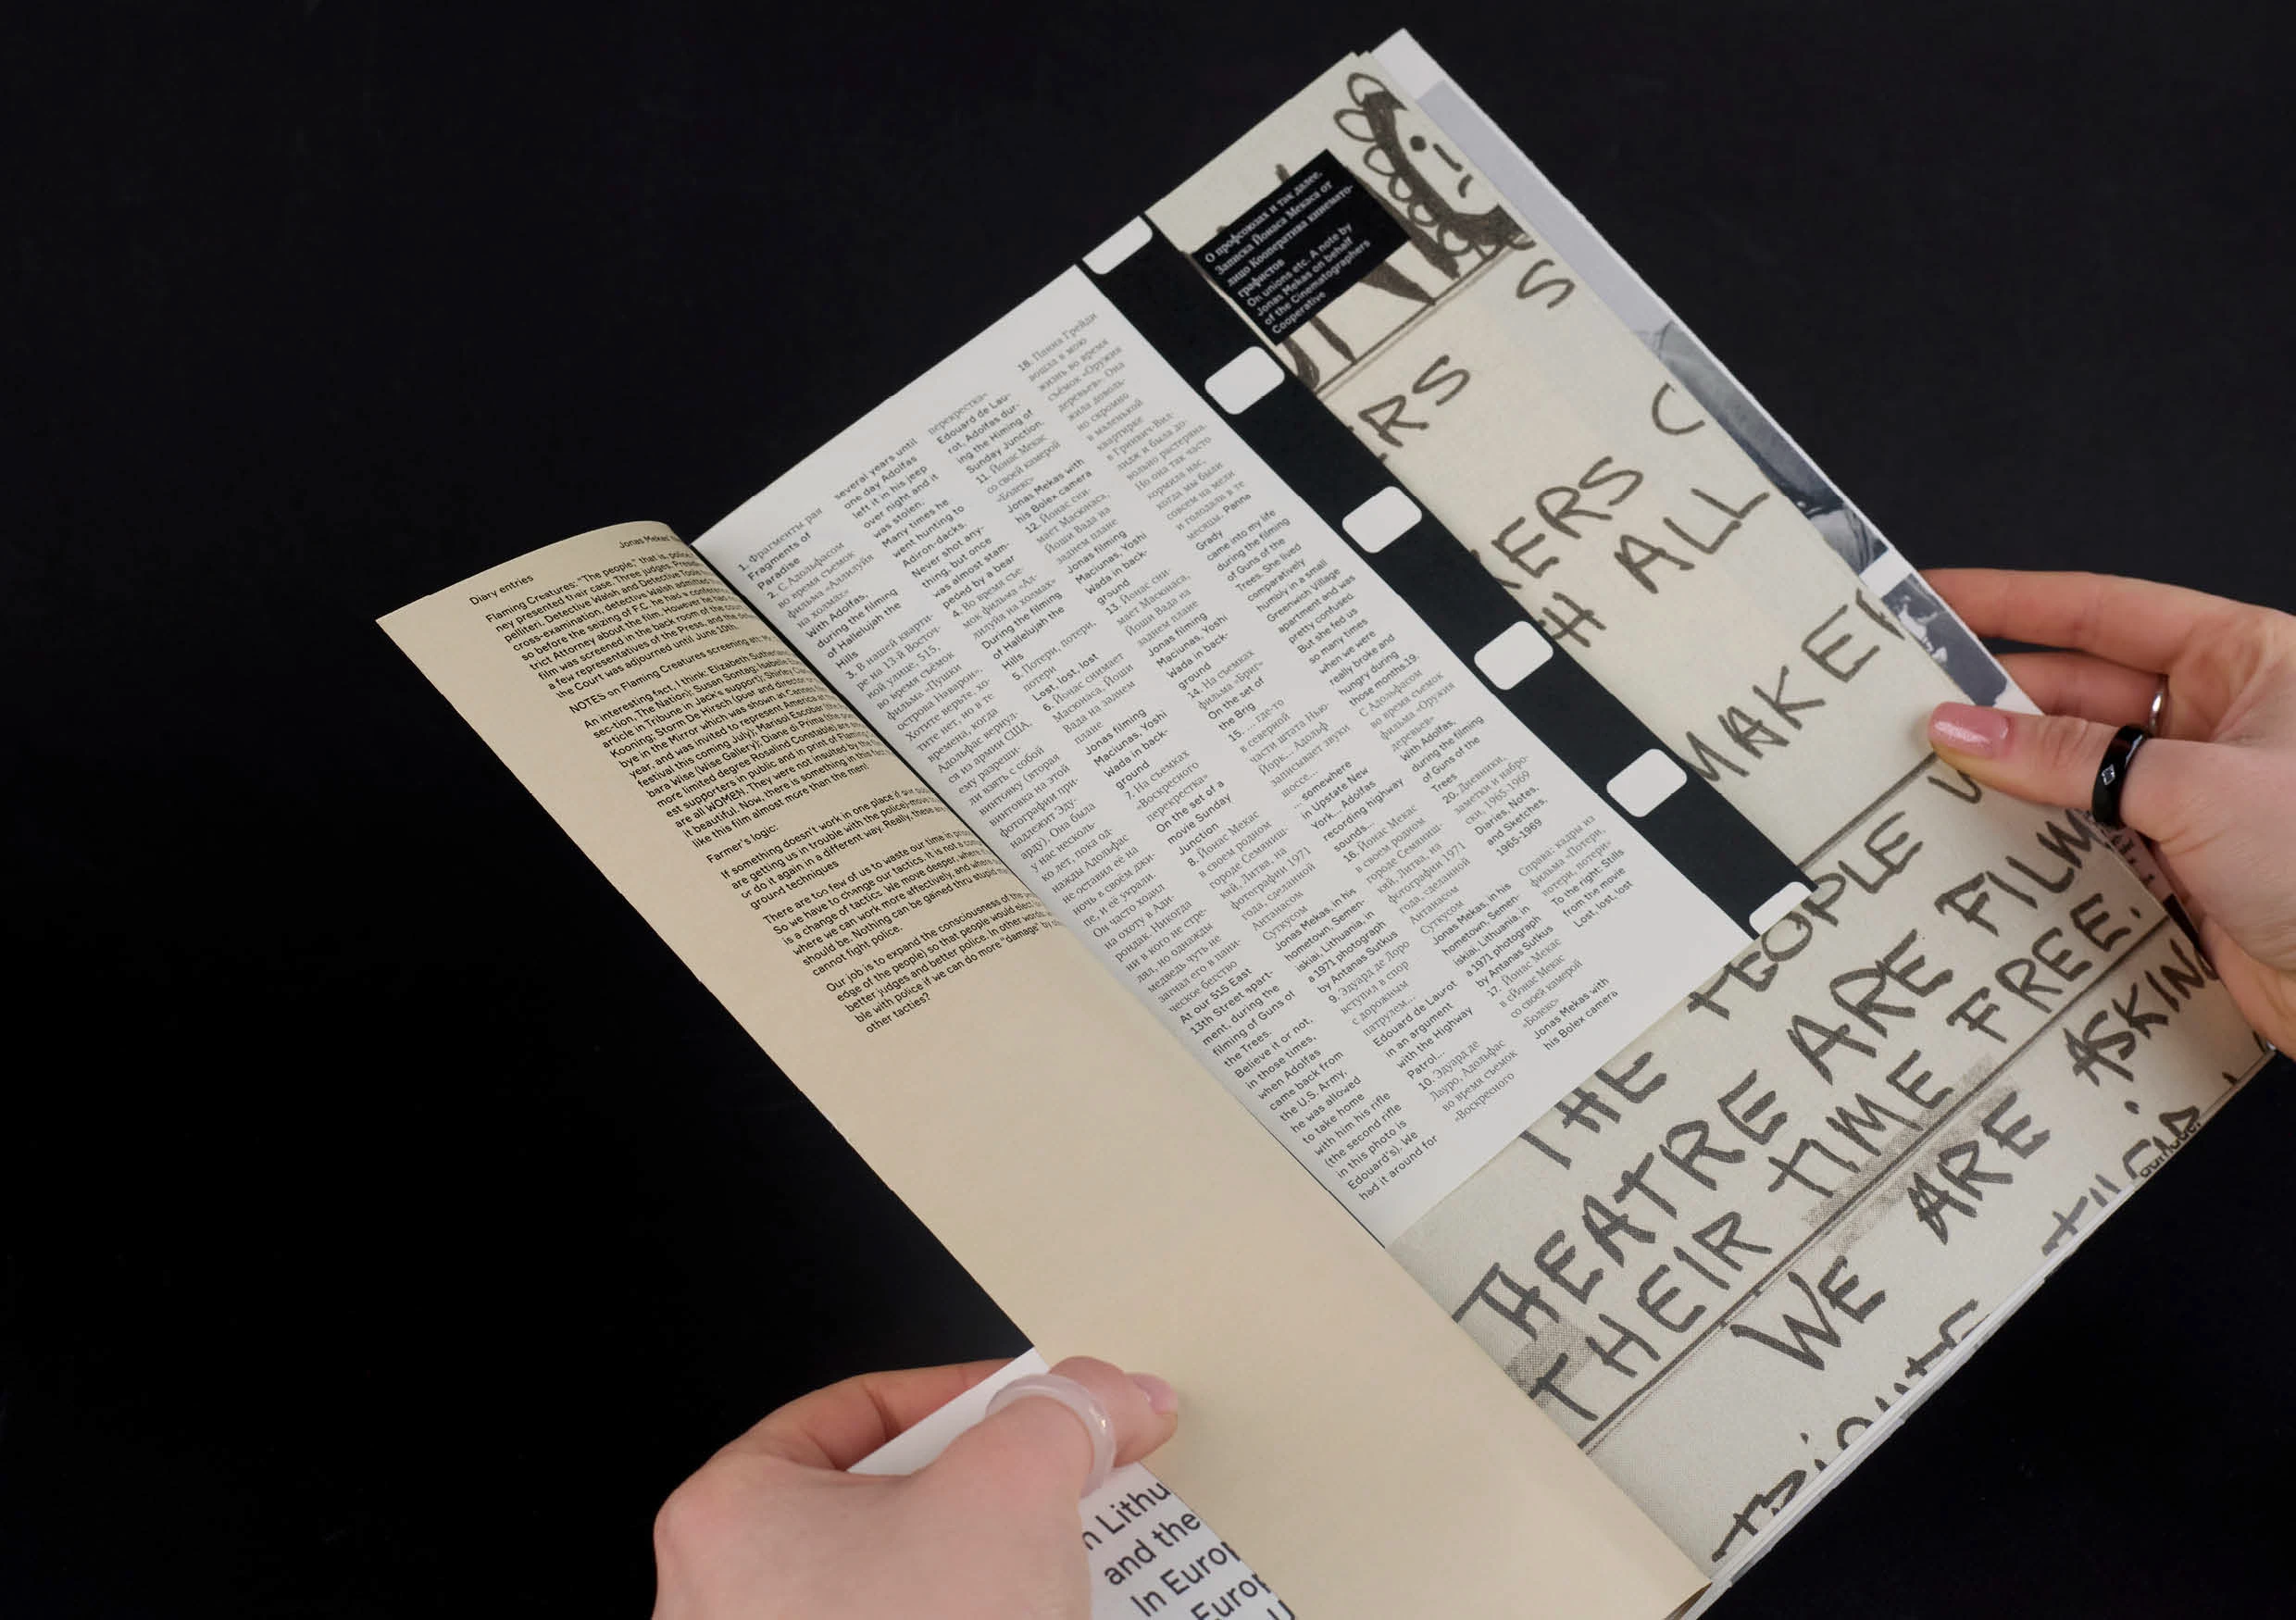 Diary entries
Jonas Mekas'
Flaming Creatures: "The people," that is, police
ney presented their case. Three judges.
pelliteri. Detective Walsh and Detective
cross-examination, detective Walsh admitted
so before the seizing of F.C. he had a
trict Attorney about the film. However he
film was screened in the back room of the
a few representatives of the Press, and the
the Court was adjourned until June 10th.
NOTES on Flaming Creatures screening
An interesting fact, I think: Elizabeth
sec-tion, The Nation); Susan Sontag;
article in Tribune in Jack's support); Shirley
Kooning; Storm De Hirsch (poet and director
bye in the Mirror which was shown at Cannes
year, and was invited to represent America
festival this coming July); Marisol Escobar
bara Wise (Wise Gallery); Diane di Prima
more limited degree Rosalind Constable)
est supporters in public and in print of
are all WOMEN. They were not insulted by the
it beautiful. Now, there is something in this
like this film almost more than the men!
Farmer's logic:
If something doesn't work in one place if our
are getting us in trouble with the police)-move
or do it again in a different way. Really, these
ground techniques
There are too few of us to waste our time in
So we have to change our tactics. It is not a
is a change of tactics. We move deeper, where
where we can work more effectively, and where
should be. Nothing can be gained thru stupid
cannot fight police.
Our job is to expand the consciousness of the
edge of the people) so that people would elect
better judges and better police. In other words,
ble with police if we can do more "damage" by
other tactics?
1. Фрагменты рая
Fragments of
Paradise
2. С Адольфасом
во время съемок
фильма «Аллилуйя
на холмах»
With Adolfas,
during the filming
of Hallelujah the
Hills
3. В нашей кварти-
ре на 13-й Восточ-
ной улице, 515,
во время съёмок
фильма «Пушки
острова Наварон».
Хотите верьте, хо-
тите нет, но в те
времена, когда
Адольфас вернул-
ся из армии США,
ему разреши-
ли взять с собой
винтовку (вторая
винтовка на этой
фотографии при-
надлежит Эду-
арду). Она была
у нас несколь-
ко лет, пока од-
нажды Адольфас
не оставил её на
ночь в своём джи-
пе, и её украли.
Он часто ходил
на охоту в Ади-
рондак. Никогда
ни в кого не стре-
лял, но однажды
медведь чуть не
загнал его в пани-
ческое бегство
At our 515 East
13th Street apart-
ment, during the
filming of Guns of
the Trees.
Believe it or not,
in those times,
when Adolfas
came back from
the U.S. Army,
he was allowed
to take home
with him his rifle
(the second rifle
in this photo is
Edouard's). We
had it around for
several years until
one day Adolfas
left it in his jeep
over night and it
was stolen.
Many times he
went hunting to
Adiron-dacks.
Never shot any-
thing, but once
was almost stam-
peded by a bear
4. Во время съе-
мок фильма «Ал-
лилуйя на холмах»
During the filming
of Hallelujah the
Hills
5. Потери, потери,
потери
Lost, lost, lost
6. Йонас снимает
Масюнаса, Йоши
Вада на заднем
плане
Jonas filming
Maciunas, Yoshi
Wada in back-
ground
7. На съемках
«Воскресного
перекрестка»
On the set of a
movie Sunday
Junction
8. Йонас Мекас
в своем родном
городе Семениш-
кяй, Литва, на
фотографии 1971
года, сделанной
Антанасом
Суткусом
Jonas Mekas, in his
hometown, Semen-
iskiai, Lithuania, in
a 1971 photograph
by Antanas Sutkus
9. Эдуард де Лоро
вступил в спор
с дорожным
патрулем...
Edouard de Laurot
in an argument
with the Highway
Patrol...
10. Эдуард де
Лауро, Адольфас
во время съемок
«Воскресного
перекрестка»
Edouard de Lau-
rot, Adolfas dur-
ing the Himing of
Sunday Junction.
11. Йонас Мекас
со своей камерой
«Болекс»
Jonas Mekas with
his Bolex camera
12. Йонас сни-
мает Масюнаса,
Йоши Вада на
заднем плане
Jonas filming
Maciunas, Yoshi
Wada in back-
ground
13. Йонас сни-
мает Масюнаса,
Йоши Вада на
заднем плане
Jonas filming
Maciunas, Yoshi
Wada in back-
ground
14. На съемках
фильма «Бриг»
On the set of
the Brig
15. ... где-то
в северной
части штата Нью-
Йорк... Адольф
записывает звуки
шоссе...
... somewhere
in Upstate New
York... Adolfas
recording highway
sounds...
16. Йонас Мекас
в своем родном
городе Семениш-
кяй, Литва, на
фотографии 1971
года, сделанной
Антанасом
Суткусом
Jonas Mekas, in his
hometown, Semen-
iskiai, Lithuania, in
a 1971, photograph
by Antanas Sutkus
17. Йонас Мекас
в сЙонас Мекас
со своей камерой
«Болекс»
Jonas Mekas with
his Bolex camera
18. Панна Грейди
вошла в мою
жизнь во время
съёмок «Оружия
деревьев». Она
жила доволь-
но скромно
в маленькой
квартирке
в Гринвич Вил-
лидж и была до-
вольно растеряна.
Но она так часто
кормила нас,
когда мы были
совсем на мели
и голодали в те
месяцы. Panna
Grady
came into my life
during the filming
of Guns of the
Trees. She lived
comparatively
humbly in a small
Greenwich Village
apartment and was
pretty confused.
But she fed us
so many times
when we were
really broke and
hungry during
those months.19.
С Адольфасом
во время съемок
фильма «Оружия
деревьев»
With Adolfas,
during the filming
of Guns of the
Trees
20. Дневники,
заметки и набро-
ски, 1965-1969
Diaries, Notes,
and Sketches,
1965-1969
Справа: кадры из
фильма «Потери,
потери, потери»
To the right: Stills
from the movie
Lost, lost, lost
О профсоюзах и так далее.
Записка Йонаса Мекаса от
лица Кооператива кинемато-
графистов
On unions etc. A note by
Jonas Mekas on behalf
of the Cinematographers
Cooperative
S
ERS C
KERS
H ALL
MAKE
PEOPLE
THE
THEATRE ARE FILM
THEIR TIME FREE.
WE ARE ASKIN
n Lithu
and the
In Europ
Europ